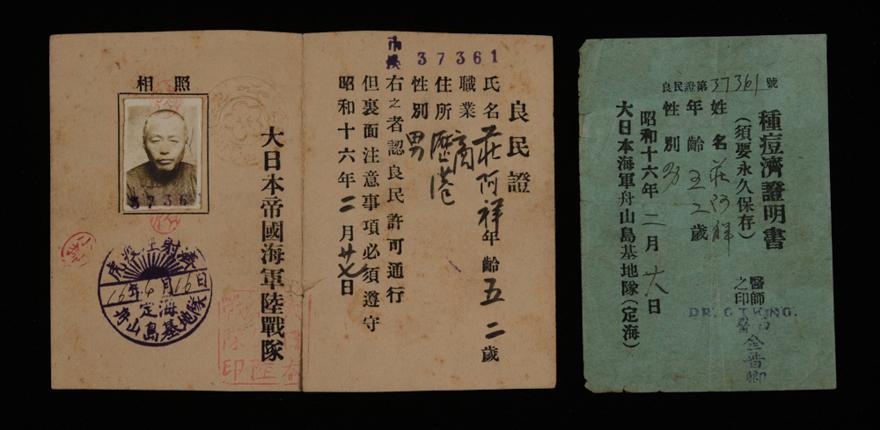 37361
良民證
氏名 莊阿祥 年齡 五二 歲
職業 商
住所 歷港
性別 男
右之者認良民許可通行
但裏面注意事項必須遵守
昭和十六年 二月 廿七日
大日本帝國海軍陸戰隊
照相
3736
16年4月16日
定海
舟山島基地隊
種痘濟證明書
(須要永久保存)
良民證第37361號
姓名 莊阿祥
年齡 五二 歲
性別 男
昭和十六年 二月 六日
大日本海軍舟山島基地隊(定海)
醫師
之印